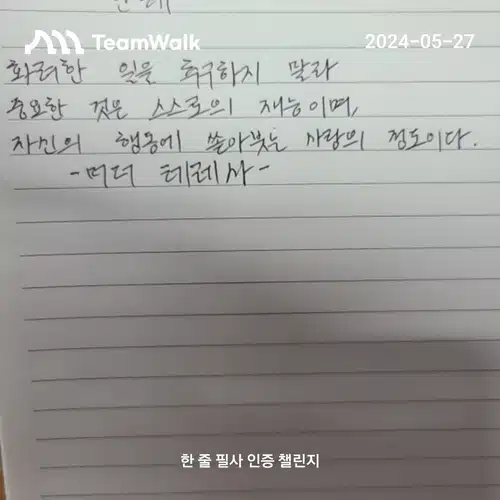 TeamWalk
2024-05-27
화려한 일을 추구하지 말라
중요한 것은 스스로의 재능이며,
자신의 행동에 쏟아붓는 사랑의 정도이다.
-머더 테레사-
한 줄 필사 인증 챌린지